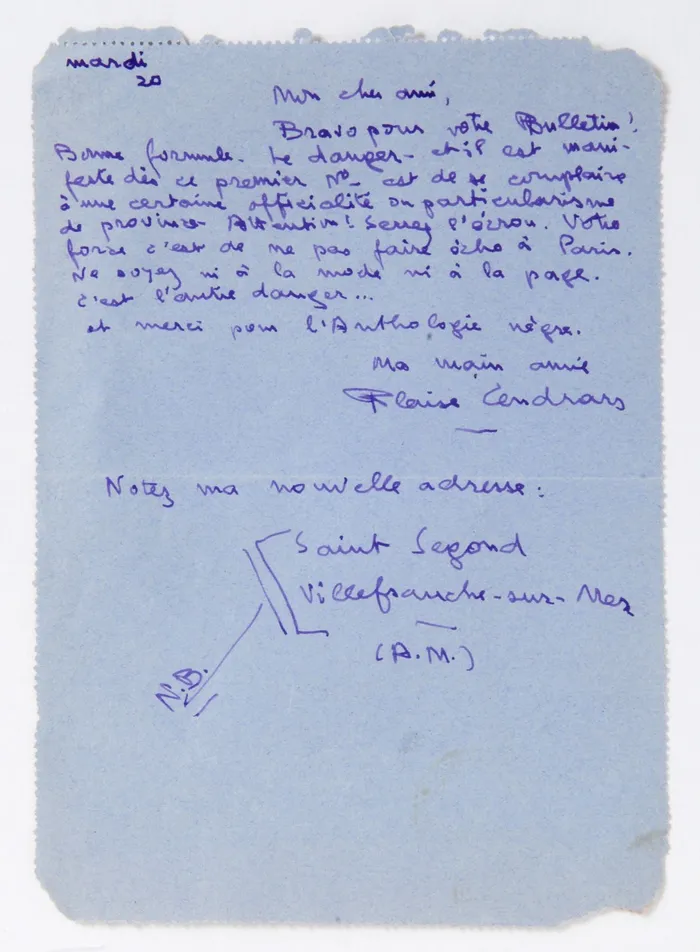 mardi
20
Mon cher ami,
Bravo pour votre Bulletin!
Bonne formule. Le danger - et il est mani-
feste dès ce premier No - est de se complaire
à une certaine officialité ou particularisme
de province. Attention! Serrez l'écrou. Votre
force c'est de ne pas faire écho à Paris.
Ne soyez ni à la mode ni à la page.
c'est l'autre danger...
et merci pour l'Anthologie nègre.
Ma main amie
Blaise Cendrars
Notez ma nouvelle adresse :
Saint Segond
Villefranche-sur-Mer
(A.M.)
N.B.